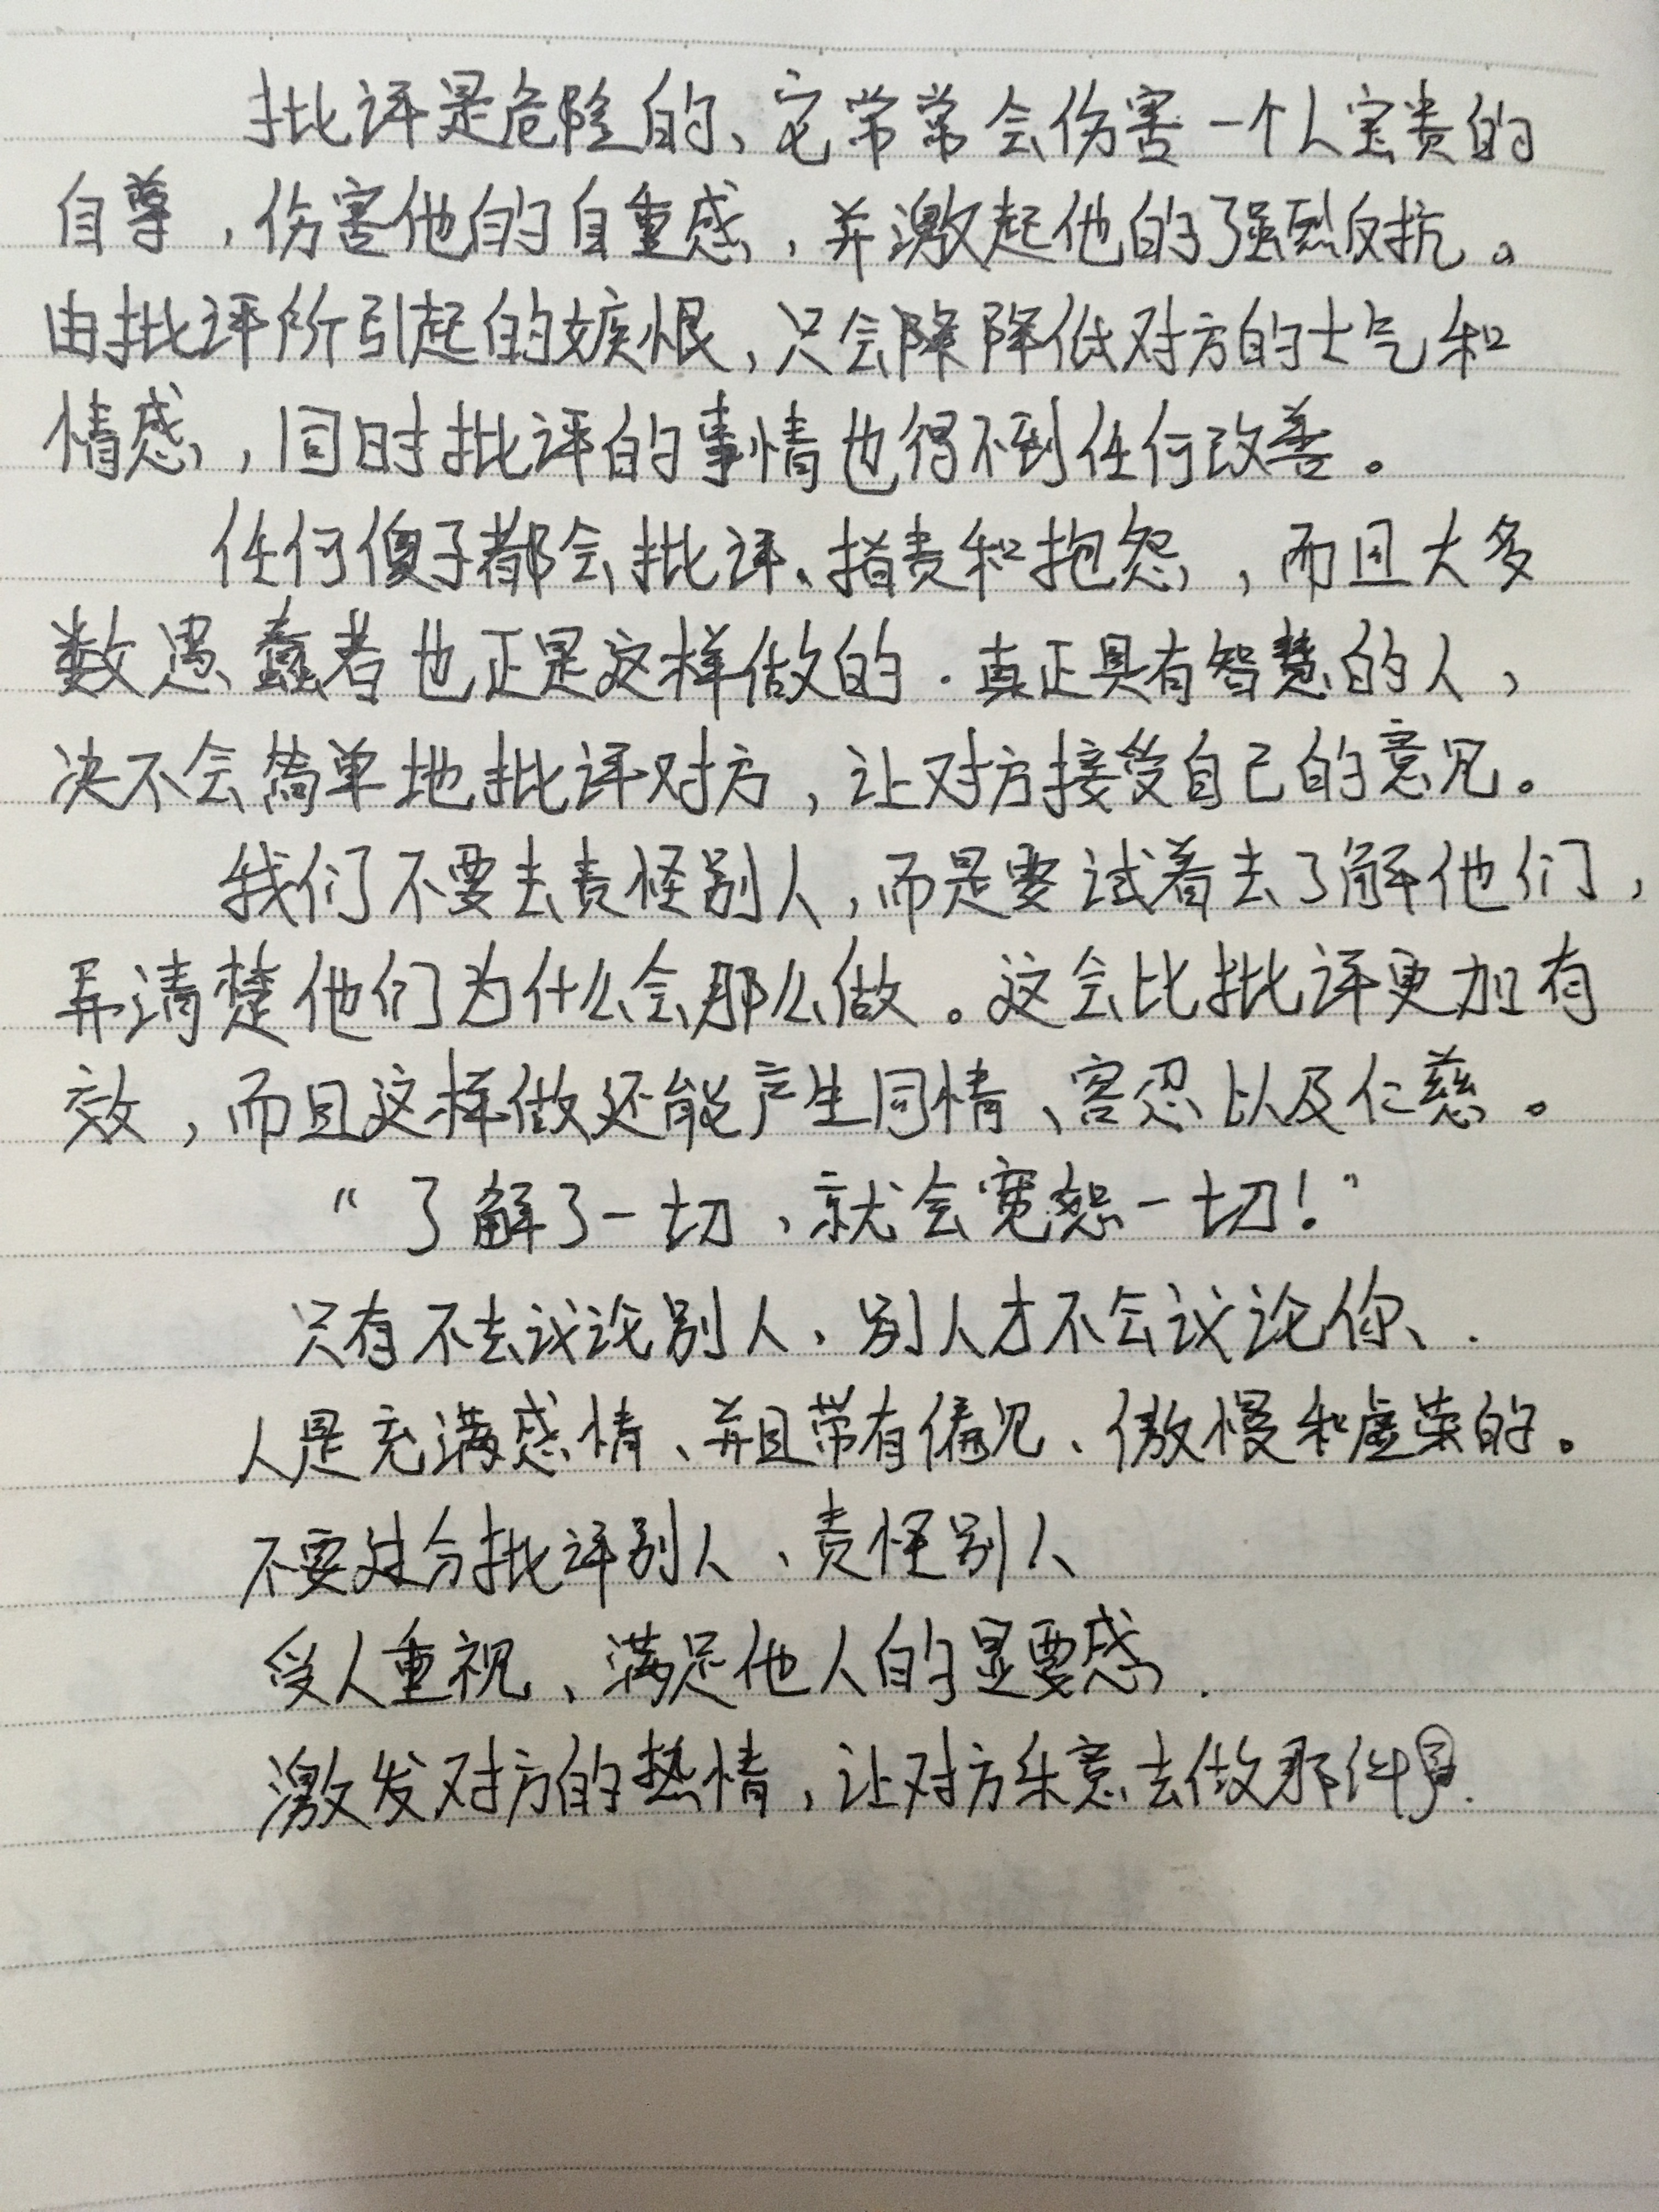 批评是危险的、它常常会伤害一个人宝贵的
自尊，伤害他的自重感，并激起他的强烈反抗。
由批评所引起的嫉恨，只会降降低对方的士气和
情感，同时批评的事情也得不到任何改善。
任何傻子都会批评、指责和抱怨，而且大多
数愚蠢者也正是这样做的.真正具有智慧的人，
决不会简单地批评对方，让对方接受自己的意见。
我们不要去责怪别人，而是要试着去了解他们，
弄清楚他们为什么会那么做。这会比批评更加有
效，而且这样做还能产生同情、容忍以及仁慈。
“了解了一切，就会宽恕一切！”
只有不去议论别人，别人才不会议论你、.
人是充满感情、并且带有偏见、傲慢和虚荣的。
不要过分批评别人、责怪别人
受人重视、满足他人的显要感.
激发对方的热情，让对方乐意去做那件事.